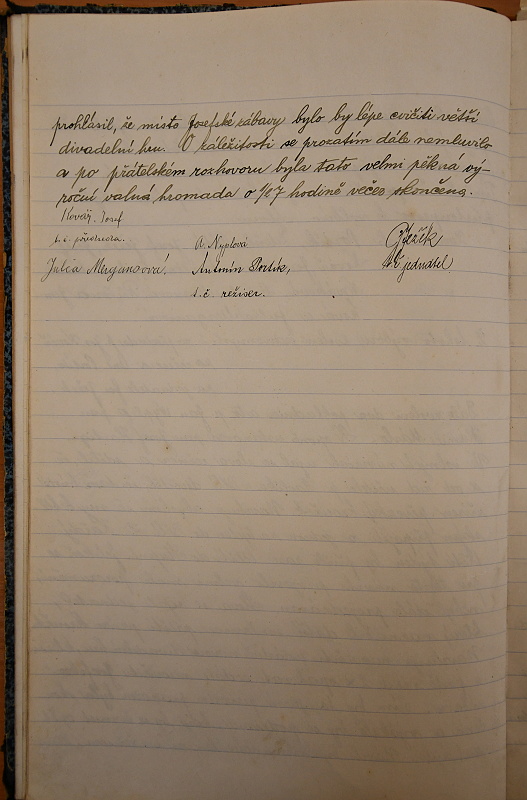 prohlásil, že místo Josefské zábavy bylo by lépe cvičiti větší
divadelní hru. O záležitosti se prozatím dále nemluvilo
a po přátelském rozhovoru byla tato velmi pěkná vý-
roční valná hromada o ½7 hodině večer skončena.
Kovář. Josef
t. č. předseda.
A. Nyplová
Ježek
t. č. jednatel.
Julia
Antonín
t. č. režiser.